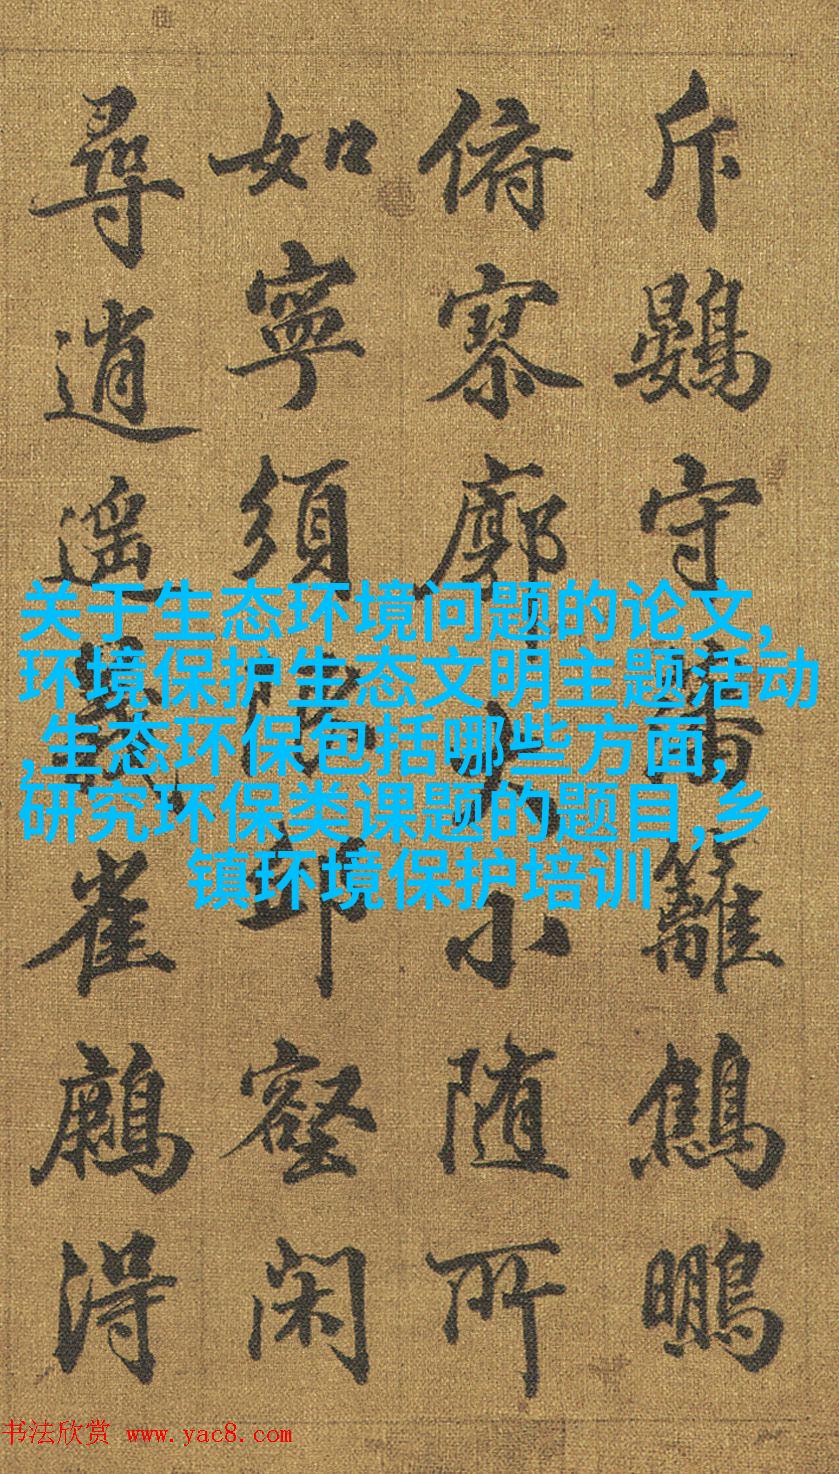 斥鷃守籬鷦鵬
俯寥廓大小随所
如寧須邱壑閑
尋逍遥雀得
关于生态环境问题的论文,
环境保护生态文明主题活动
,生态环保包括哪些方面,
研究环保类课题的题目,乡
镇环境保护培训
书法欣赏 www.yac8.com